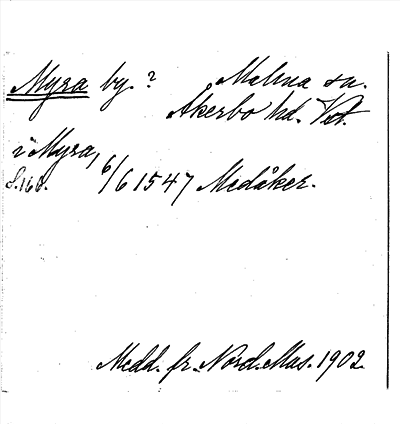 Myra by.? Malma sn.
Åkerbo hd. Vstm.
i Myra, 6/6 1547 Medåker.
S. 160.
Medd. fr. Nord. Mus. 1902